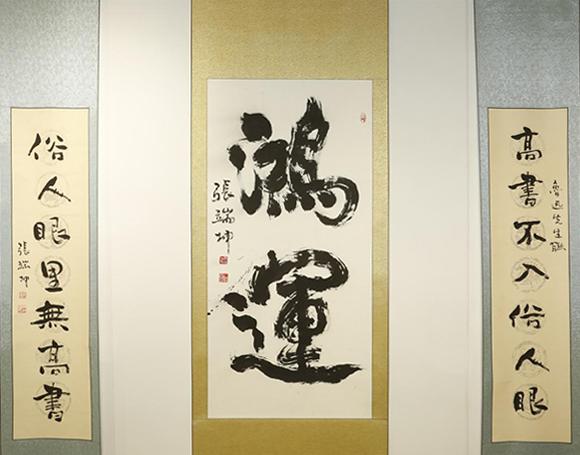 高書不入俗人眼
魯迅先生聯
鴻運
張端坤
俗人眼里無高書
張端坤